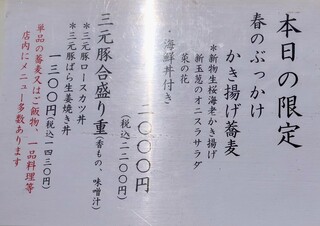 本日の限定
春のぶっかけ
かき揚げ蕎麦
*新物生桜海老かき揚げ
新玉葱のオニスラサラダ
菜の花
・海鮮丼付き
二〇〇〇円
(税込二二〇〇円)
三元豚合盛り重(香もの、味噌汁)
*三元豚ロースカツ丼
*三元豚ばら生姜焼き丼
一三〇〇円(税込一四三〇円)
単品の蕎麦又はご飯物、一品料理等
店内にメニュー多数あります